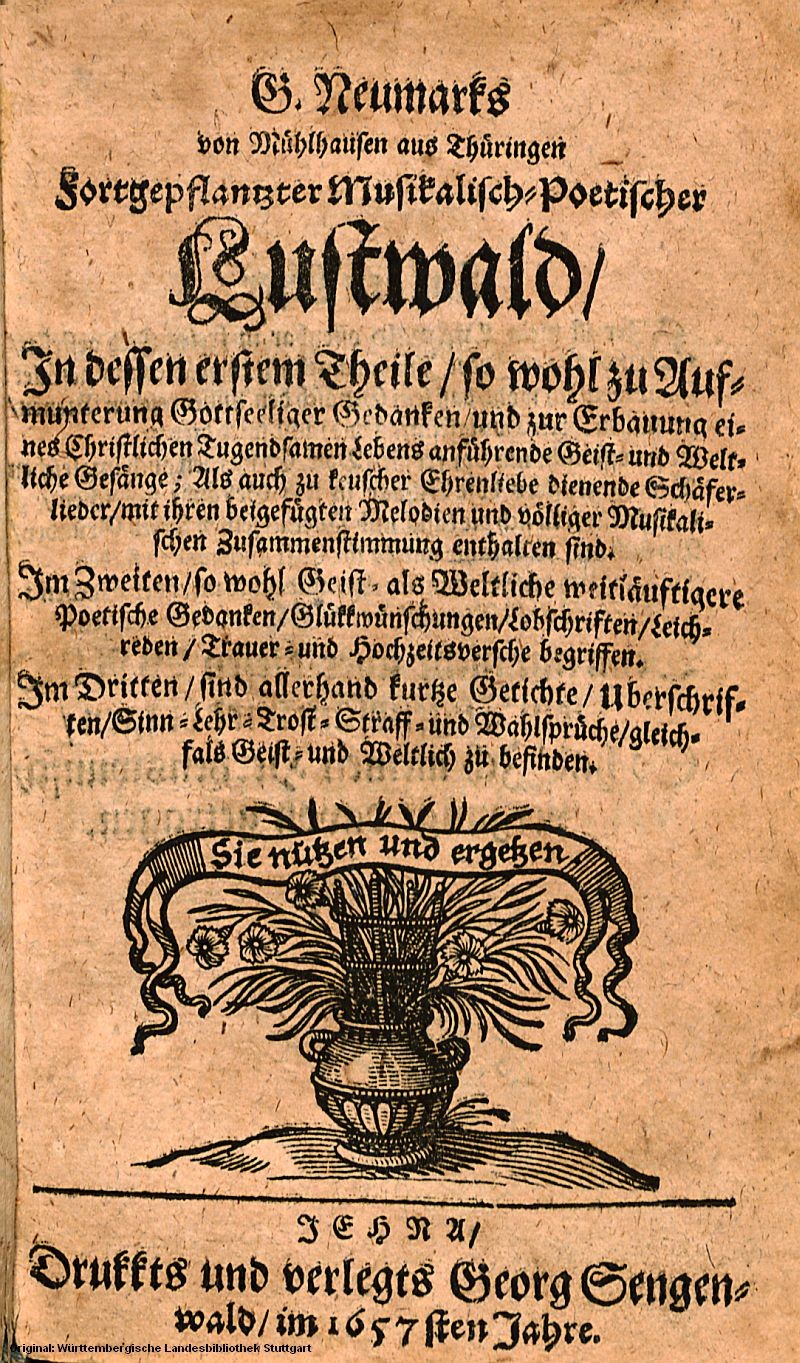 G. Neumarks
von Mühlhausen aus Thüringen
Fortgepflantzter Musikalisch-Poetischer
Lustwald/
In dessen erstem Theile / so wohl zu Auf-
munterung Gottseeliger Gedanken / und zur Erbauung ei-
nes Christlichen Tugendsamen Lebens anführende Geist- und Welt-
liche Gesänge; Als auch zu keuscher Ehrenliebe dienende Schäfer-
lieder/mit ihren beigefügten Melodien und völliger Musikali-
schen Zusammenstimmung enthalten sind.
Im Zweiten/so wohl Geist- als Weltliche weitläuftigere
Poetische Gedanken/Glükkwünschungen/Lobschriften/Leich-
reden / Trauer- und Hochzeitsversche begriffen.
Im Dritten / sind allerhand kurtze Getichte / Uberschrif-
ten/Sinn-Lehr-Trost-Straff-und Wahlsprüche/gleich-
fals Geist- und Weltlich zu befinden.
Sie nützen und ergetzen
JEHNA/
Drukkts und verlegts Georg Sengen-
wald/im 1657sten Jahre.
Original: Württembergische Landesbibliothek Stuttgart